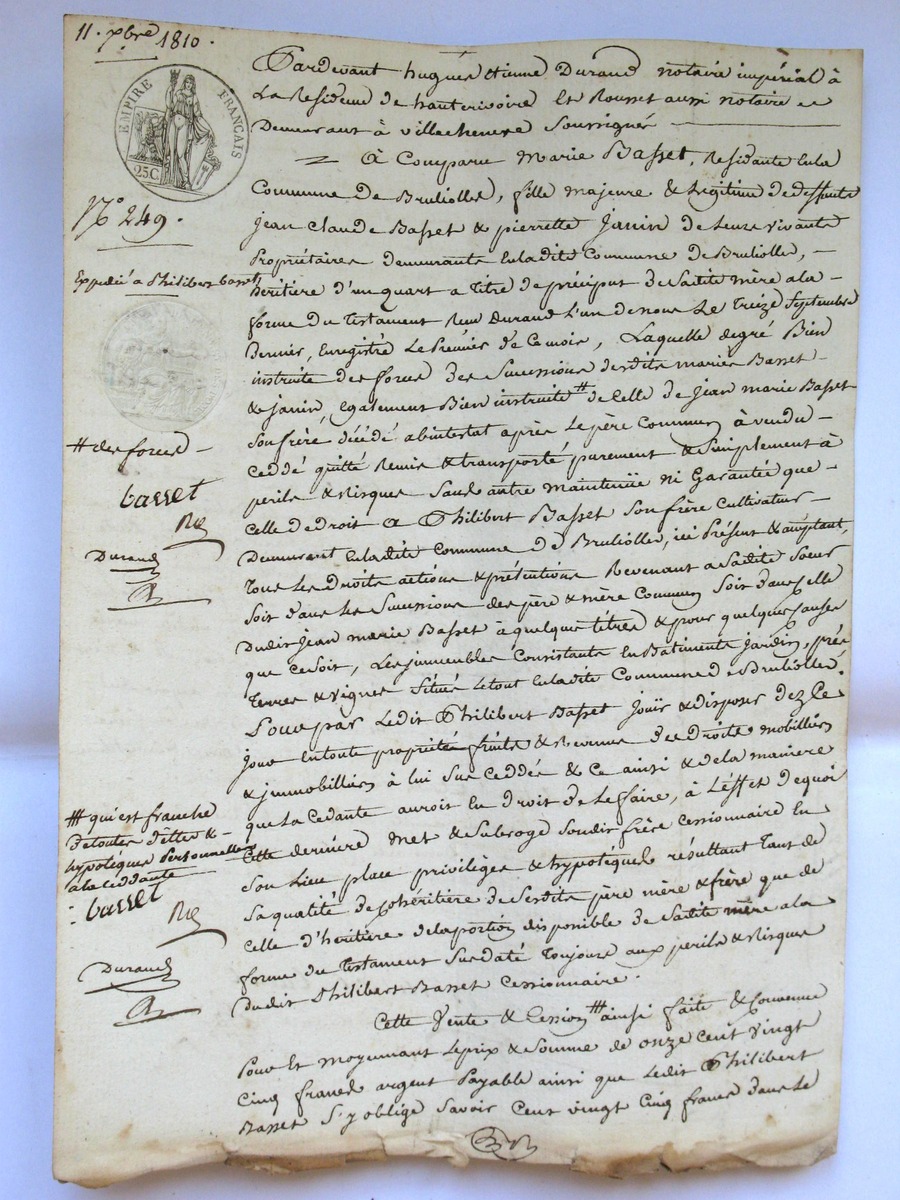 11. xbre 1810.
EMPIRE FRANÇAIS
25C.
N.o 249.
Expedié à Philibert basset
# des forces
basset
Durand
### qui est franche
de toutes dettes &
hypotéques Personnelles
à la ceddante
basset
Durand
Pardevant hugues etienne Durand notaire impérial à
La Residence de hauterivoire Et Rousset aussi notaire
Demeurant à villecheneve Soussignés
À Comparu Marie Basset, Residante en la
Commune de Brulioles, fille majeure & Légitime de deffunts
jean Claude Basset & pierrette Janin de Leurs vivants
Propriétaires demeurants en ladite Commune de Brulioles,
heritiere d'un quart a titre de préciput de Sadite mère a la
forme du testament Reçu Durand L'un de nous Le treize Septembre
Dernier, Enregistré Le Premier de Ce mois, Laquelle de gré Bien
instruite des forces des Successions desdits mariés Basset
& janin, Egalement Bien instruite # de Celle de Jean marie Basset
Son frère décédé abintestat après Le père Commun à vendu
Ceddé quitté Remis & transporté purement & Simplement à
perils & Risques Sans autre maintenüe ni Garantée que
Celle de droit a Philibert Basset Son frère Cultivateur
Demeurant en ladite Commune de Brulioles, ici Présent & aceptant,
Tous Les Droits actions & prétentions Revenant a Sadite Soeur
Soit dans Les Successions des père & mère Communs Soit dans Celle
Dudit Jean marie Basset à quelques titres & pour quelques Causes
que ce Soit, Les immeubles Consistants En Batiments jardin, prés
Terres & vignes Situés Le tout en ladite Commune de Brulioles
Pour par Ledit Philibert Basset Jouir & disposer dez Ce
jour En toute propriété fruits & Revenus des Droits mobilliers
& jmmobilliers à lui Sus Ceddés & Ce ainsi & de la maniere
que La Cedante auroit Eu Droit de Le faire, à L'effet de quoi
Cette derniere met & Subroge Sondit frère Cessionnaire En
Son Lieu place priviléges & hypotéques résultant Tant de
Sa qualité de Cohéritiere de Sesdits père mère & frère que de
Celle d'héritiere de la portion disponible de Sadite mère a la
forme du testament Susdaté Toujours aux perils & Risques
Dudit Philibert Basset Cessionnaire.
Cette Vente & Cession ### ainsi faite & Convenue
Pour Et moyennant Le prix & Somme de onze Cent vingt
Cinq francs argent Payable ainsi que Ledit Philibert
Basset S'y oblige Savoir Cent vingt Cinq francs dans Le